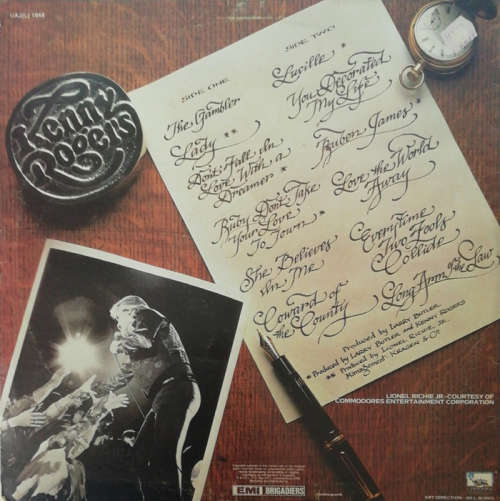 Kenny
Rogers
SIDE ONE
The Gambler
Lady **
Don't Fall In
Love With a
Dreamer *
Ruby Don't Take
Your Love
To Town *
She Believes
In Me
Coward of
the County
SIDE TWO
Lucille *
You Decorated
My Life
Reuben James *
Love the World
Away
Every time
Two Fools
Collide
Long Arm of the Law
Produced by LARRY BUTLER
* Produced by LARRY BUTLER and KENNY ROGERS
** Produced by LIONEL RICHIE, JR.
Management: KRAGEN & Co
LIONEL RICHIE JR.-COURTESY OF
COMMODORES ENTERTAINMENT CORPORATION
EMI BRIGADIERS